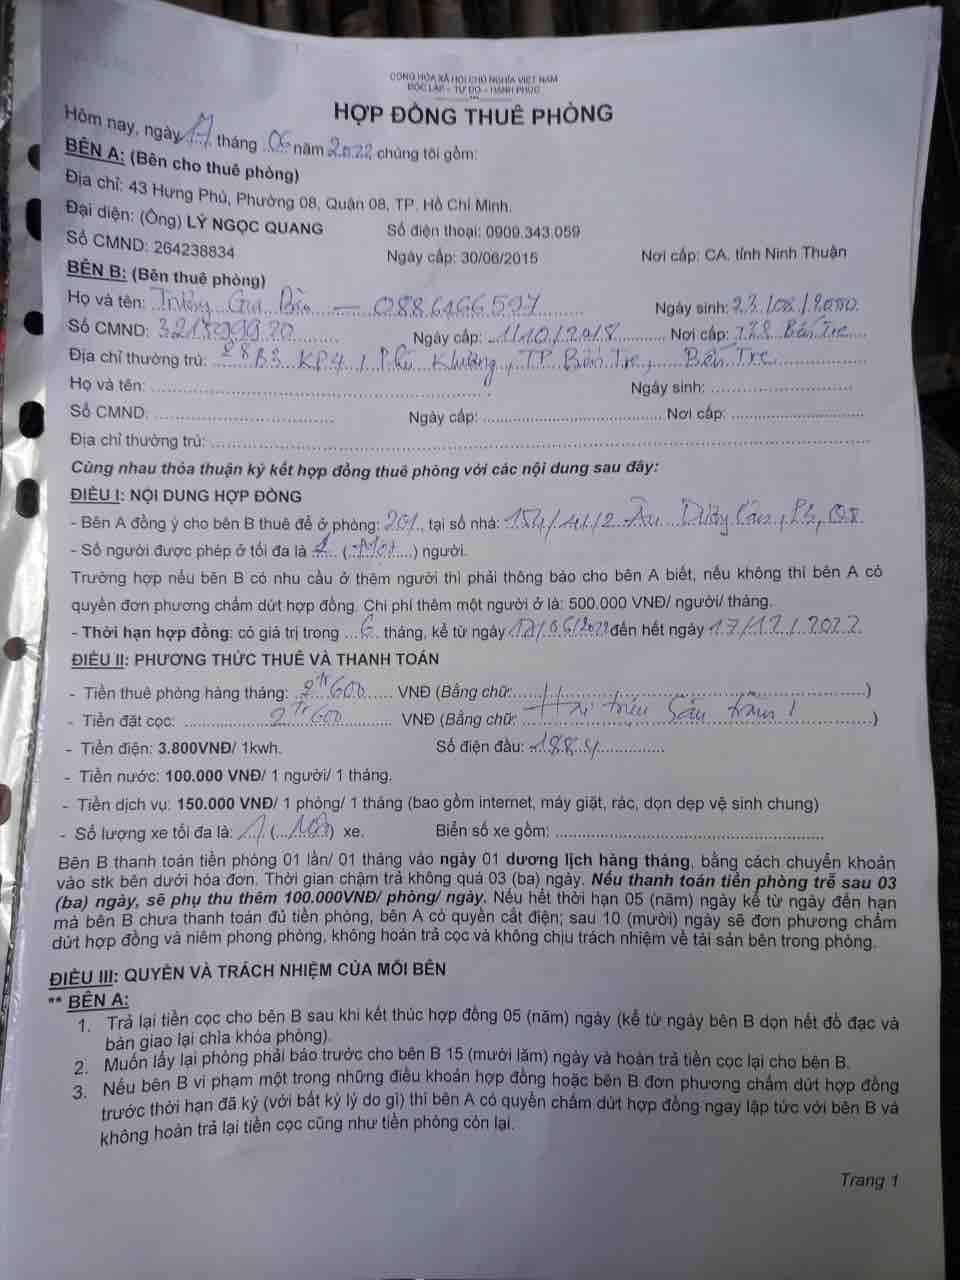 CỘNG HÒA XÃ HỘI CHỦ NGHĨA VIỆT NAM
ĐỘC LẬP - TỰ DO - HẠNH PHÚC
HỢP ĐỒNG THUÊ PHÒNG
Hôm nay, ngày 17 tháng 06 năm 2022 chúng tôi gồm:
BÊN A: (Bên cho thuê phòng)
Địa chỉ: 43 Hưng Phú, Phường 08, Quận 08, TP. Hồ Chí Minh.
Đại diện: (Ông) LÝ NGỌC QUANG Số điện thoại: 0909.343.059
Số CMND: 264238834 Ngày cấp: 30/06/2015 Nơi cấp: CA. tỉnh Ninh Thuận
BÊN B: (Bên thuê phòng)
Họ và tên: Trương Gia - 0886166597 Ngày sinh: 23/08/2000
Số CMND: 321899920 Ngày cấp: 1/10/2018 Nơi cấp: Bến Tre
Địa chỉ thường trú: 28B3 KP4, Phú Khương, TP Bến Tre, Bến Tre
Họ và tên: Ngày sinh:
Số CMND: Ngày cấp: Nơi cấp:
Địa chỉ thường trú:
Cùng nhau thỏa thuận ký kết hợp đồng thuê phòng với các nội dung sau đây:
ĐIỀU I: NỘI DUNG HỢP ĐỒNG
- Bên A đồng ý cho bên B thuê để ở phòng: 201 tại số nhà: 154/41/2 Âu Dương Lân, P, 08
- Số người được phép ở tối đa là 1 (Một) người.
Trường hợp nếu bên B có nhu cầu ở thêm người thì phải thông báo cho bên A biết, nếu không thì bên A có
quyền đơn phương chấm dứt hợp đồng. Chi phí thêm một người ở là: 500.000 VNĐ/ người/ tháng.
- Thời hạn hợp đồng: có giá trị trong 6 tháng, kể từ ngày 17/06/2022 đến hết ngày 17/12/2022
ĐIỀU II: PHƯƠNG THỨC THUÊ VÀ THANH TOÁN
- Tiền thuê phòng hàng tháng: 2tr600 VNĐ (Bằng chữ: )
- Tiền đặt cọc: 2tr600 VNĐ (Bằng chữ: Hai triệu sáu trăm)
- Tiền điện: 3.800VNĐ/ 1kwh. Số điện đầu: 188
- Tiền nước: 100.000 VNĐ/ 1 người/ 1 tháng.
- Tiền dịch vụ: 150.000 VNĐ/ 1 phòng/ 1 tháng (bao gồm internet, máy giặt, rác, dọn dẹp vệ sinh chung)
- Số lượng xe tối đa là: 1 (Một) xe. Biển số xe gồm:
Bên B thanh toán tiền phòng 01 lần/ 01 tháng vào ngày 01 dương lịch hàng tháng, bằng cách chuyển khoản
vào stk bên dưới hóa đơn. Thời gian chậm trả không quá 03 (ba) ngày. Nếu thanh toán tiền phòng trễ sau 03
(ba) ngày, sẽ phụ thu thêm 100.000VNĐ/ phòng/ ngày. Nếu hết thời hạn 05 (năm) ngày kể từ ngày đến hạn
mà bên B chưa thanh toán đủ tiền phòng, bên A có quyền cắt điện; sau 10 (mười) ngày sẽ đơn phương chấm
dứt hợp đồng và niêm phong phòng, không hoàn trả cọc và không chịu trách nhiệm về tài sản bên trong phòng.
ĐIỀU III: QUYỀN VÀ TRÁCH NHIỆM CỦA MỖI BÊN
** BÊN A:
1. Trả lại tiền cọc cho bên B sau khi kết thúc hợp đồng 05 (năm) ngày (kể từ ngày bên B dọn hết đồ đạc và
bàn giao lại chìa khóa phòng).
2. Muốn lấy lại phòng phải báo trước cho bên B 15 (mười lăm) ngày và hoàn trả tiền cọc lại cho bên B.
3. Nếu bên B vi phạm một trong những điều khoản hợp đồng hoặc bên B đơn phương chấm dứt hợp đồng
trước thời hạn đã ký (với bất kỳ lý do gì) thì bên A có quyền chấm dứt hợp đồng ngay lập tức với bên B và
không hoàn trả lại tiền cọc cũng như tiền phòng còn lại.
Trang 1